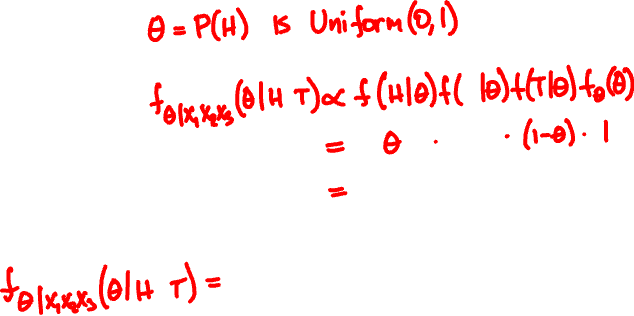 θ = P(H) is Uniform(0,1)
f_{θ|x₁x₂x₃}(θ|H T) ∝ f(H|θ)f( |θ)f(T|θ)f_θ(θ)
= θ · · (1-θ) · 1
=
f_{θ|x₁x₂x₃}(θ|H T) =